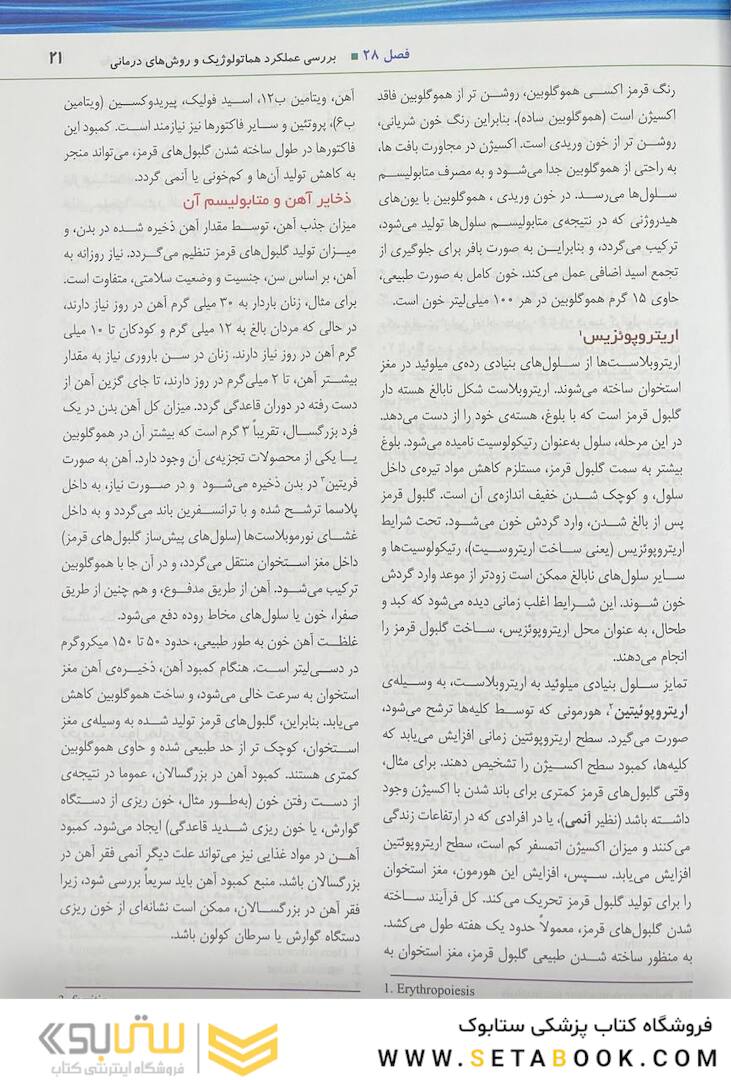 فصل ۲۸ ■ بررسی عملکرد هماتولوژیک و روش‌های درمانی
۲۱
رنگ قرمز اکسی هموگلوبین، روشن تر از هموگلوبین فاقد
اکسیژن است (هموگلوبین ساده). بنابراین رنگ خون شریانی،
روشن تر از خون وریدی است. اکسیژن در مجاورت بافت ها،
به راحتی از هموگلوبین جدا می‌شود و به مصرف متابولیسم
سلول‌ها می‌رسد. در خون وریدی ، هموگلوبین با یون‌های
هیدروژنی که در نتیجه‌ی متابولیسم سلول‌ها تولید می‌شود،
ترکیب می‌گردد، و بنابراین به صورت بافر برای جلوگیری از
تجمع اسید اضافی عمل می‌کند. خون کامل به صورت طبیعی،
حاوی ۱۵ گرم هموگلوبین در هر ۱۰۰ میلی‌لیتر خون است.
اریتروپوئزیس۱
اریتروبلاست‌ها از سلول‌های بنیادی رده‌ی میلوئید در مغز
استخوان ساخته می‌شوند. اریتروبلاست شکل نابالغ هسته دار
گلبول قرمز است که با بلوغ، هسته‌ی خود را از دست می‌دهد.
در این مرحله، سلول به‌عنوان رتیکولوسیت نامیده می‌شود. بلوغ
بیشتر به سمت گلبول قرمز، مستلزم کاهش مواد تیره‌ی داخل
سلول، و کوچک شدن خفیف اندازه‌ی آن است. گلبول قرمز
پس از بالغ شدن، وارد گردش خون می‌شود. تحت شرایط
اریتروپوئزیس (یعنی ساخت اریتروسیت)، رتیکولوسیت‌ها و
سایر سلول‌های نابالغ ممکن است زودتر از موعد وارد گردش
خون شوند. این شرایط اغلب زمانی دیده می‌شود که کبد و
طحال، به عنوان محل اریتروپوئزیس، ساخت گلبول قرمز را
انجام می‌دهند.
تمایز سلول بنیادی میلوئید به اریتروبلاست، به وسیله‌ی
اریتروپوئیتین۲، هورمونی که توسط کلیه‌ها ترشح می‌شود،
صورت می‌گیرد. سطح اریتروپوئتین زمانی افزایش می‌یابد که
کلیه‌ها، کمبود سطح اکسیژن را تشخیص دهند. برای مثال،
وقتی گلبول‌های قرمز کمتری برای باند شدن با اکسیژن وجود
داشته باشد (نظیر آنمی)، یا در افرادی که در ارتفاعات زندگی
می‌کنند و میزان اکسیژن اتمسفر کم است، سطح اریتروپوئتین
افزایش می‌یابد. سپس، افزایش این هورمون، مغز استخوان
را برای تولید گلبول قرمز تحریک می‌کند. کل فرآیند ساخته
شدن گلبول‌های قرمز، معمولاً حدود یک هفته طول می‌کشد.
به منظور ساخته شدن طبیعی گلبول قرمز، مغز استخوان به
1. Erythropoiesis
آهن، ویتامین ب۱۲، اسید فولیک، پیریدوکسین (ویتامین
ب۶)، پروتئین و سایر فاکتورها نیز نیازمند است. کمبود این
فاکتورها در طول ساخته شدن گلبول‌های قرمز، می‌تواند منجر
به کاهش تولید آن‌ها و کم‌خونی یا آنمی گردد.
ذخایر آهن و متابولیسم آن
میزان جذب آهن، توسط مقدار آهن ذخیره شده در بدن، و
میزان تولید گلبول‌های قرمز تنظیم می‌گردد. نیاز روزانه به
آهن، بر اساس سن، جنسیت و وضعیت سلامتی، متفاوت است.
برای مثال، زنان باردار به ۳۰ میلی گرم آهن در روز نیاز دارند،
در حالی که مردان بالغ به ۱۲ میلی گرم و کودکان تا ۱۰ میلی
گرم آهن در روز نیاز دارند. زنان در سن باروری نیاز به مقدار
بیشتر آهن، تا ۲ میلی‌گرم در روز دارند، تا جای گزین آهن از
دست رفته در دوران قاعدگی گردد. میزان کل آهن بدن در یک
فرد بزرگسال، تقریباً ۳ گرم است که بیشتر آن در هموگلوبین
یا یکی از محصولات تجزیه‌ی آن وجود دارد. آهن به صورت
فریتین۳ در بدن ذخیره می‌شود و در صورت نیاز، به داخل
پلاسما ترشح شده و با ترانسفرین باند می‌گردد و به داخل
غشای نورموبلاست‌ها (سلول‌های پیش‌ساز گلبول‌های قرمز)
داخل مغز استخوان منتقل می‌گردد، و در آن جا با هموگلوبین
ترکیب می‌شود. آهن از طریق مدفوع، و هم چنین از طریق
صفرا، خون یا سلول‌های مخاط روده دفع می‌شود.
غلظت آهن خون به طور طبیعی، حدود ۵۰ تا ۱۵۰ میکروگرم
در دسی‌لیتر است. هنگام کمبود آهن، ذخیره‌ی آهن مغز
استخوان به سرعت خالی می‌شود، و ساخت هموگلوبین کاهش
می‌یابد. بنابراین، گلبول‌های قرمز تولید شده به وسیله‌ی مغز
استخوان، کوچک تر از حد طبیعی شده و حاوی هموگلوبین
کمتری هستند. کمبود آهن در بزرگسالان، عموما در نتیجه‌ی
از دست رفتن خون (به‌طور مثال، خون ریزی از دستگاه
گوارش، یا خون ریزی شدید قاعدگی) ایجاد می‌شود. کمبود
آهن در مواد غذایی نیز می‌تواند علت دیگر آنمی فقر آهن در
بزرگسالان باشد. منبع کمبود آهن باید سریعاً بررسی شود، زیرا
فقر آهن در بزرگسالان، ممکن است نشانه‌ای از خون ریزی
دستگاه گوارش یا سرطان کولون باشد.
فروشگاه کتاب پزشکی ستابوک
WWW.SETABOOK.COM
ستابوک
فروشگاه اینترنتی کتاب